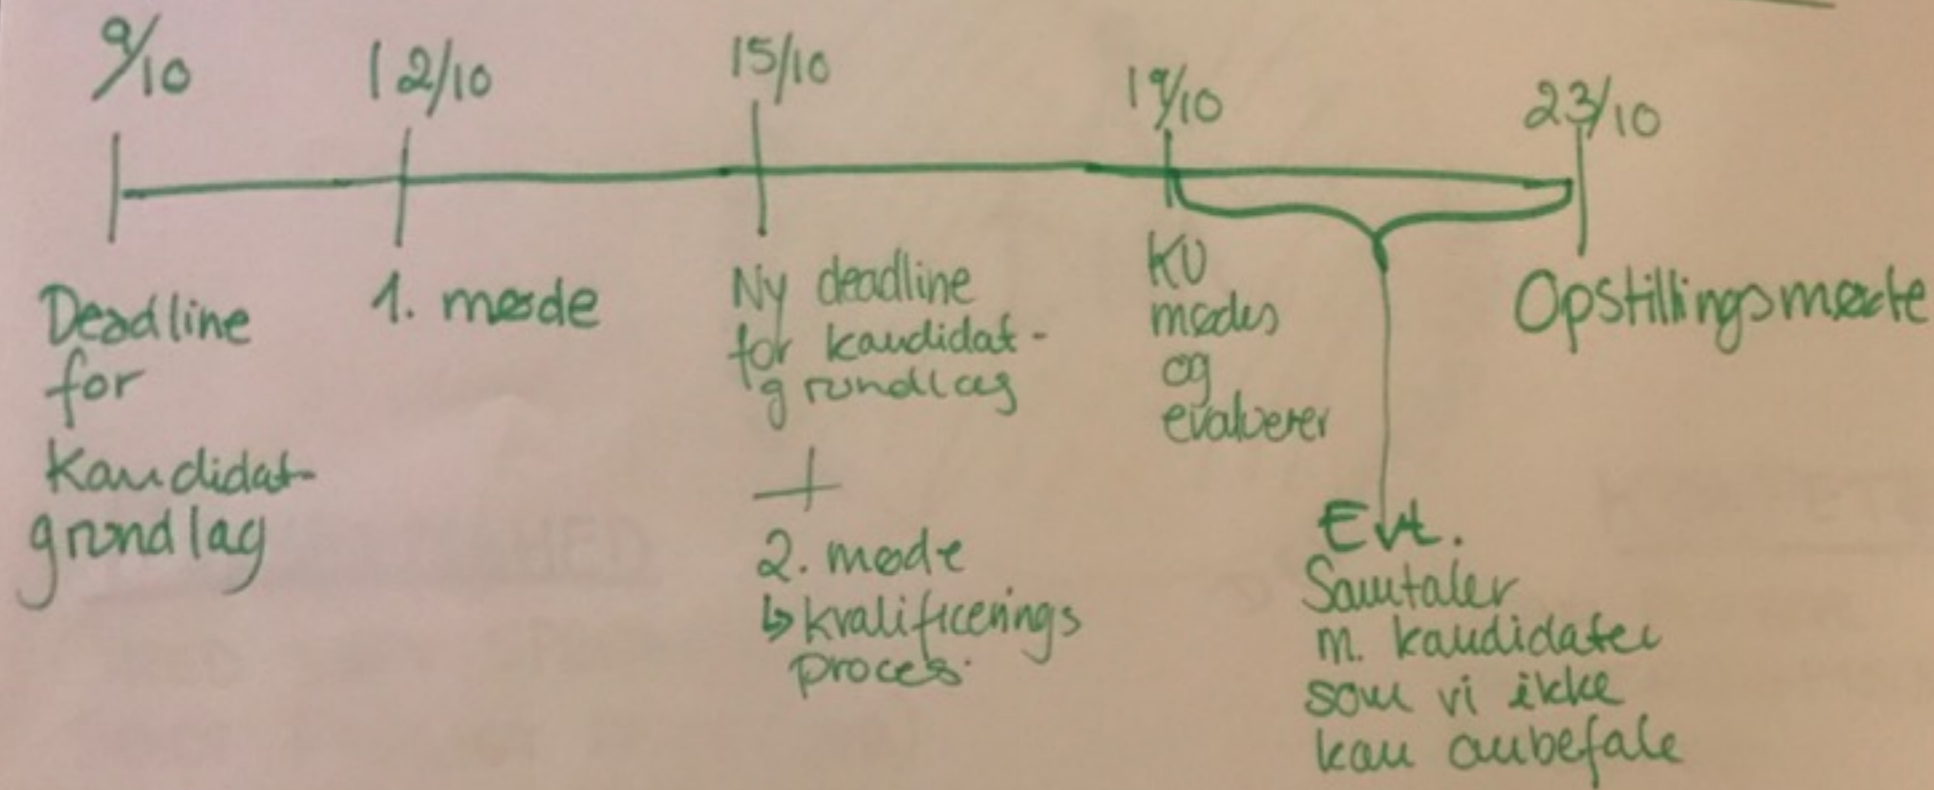 9/10
Deadline
for
Kandidat-
grundlag
12/10
1. møde
15/10
Ny deadline
for kandidat-
grundlag
+
2. møde
↳ kvalificerings
proces.
19/10
KU
mødes
og
evaluerer
Evt.
Samtaler
m. kandidater
som vi ikke
kan anbefale
23/10
Opstillingsmøde